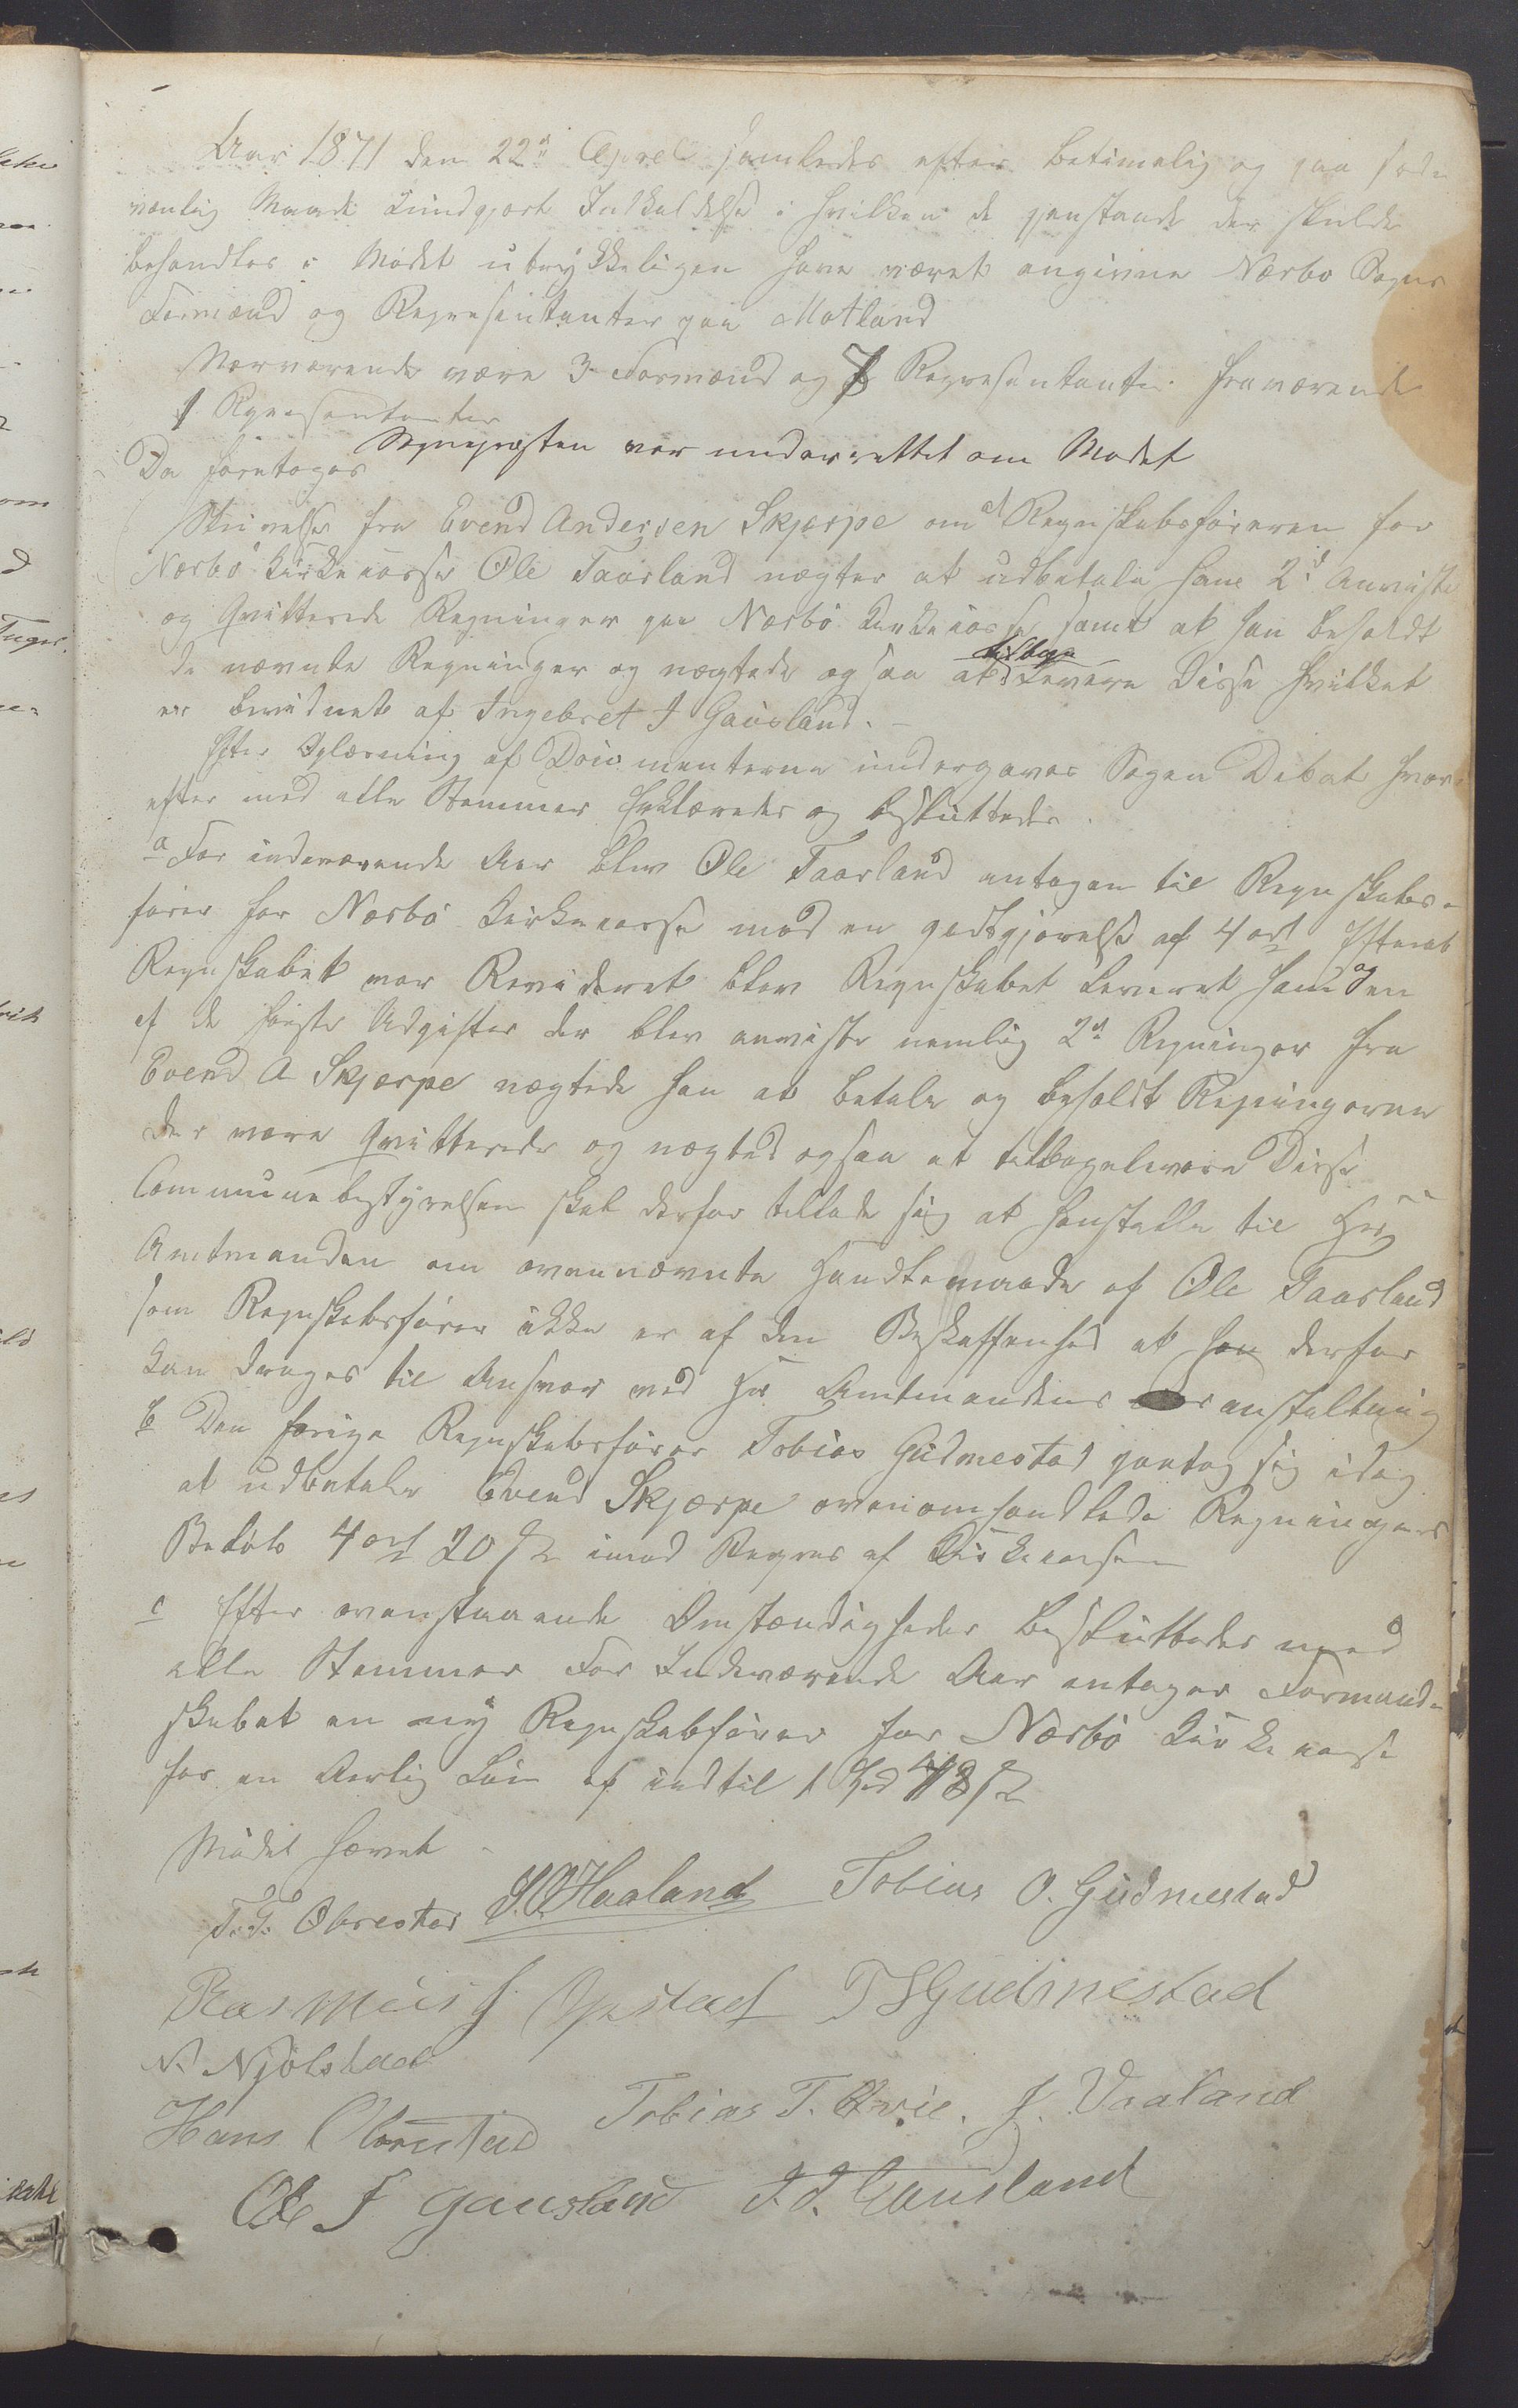 Aar 1871 den 22de April samledes efter betimelig og paa sæd
vanlig Maade kundgjort Indkaldelse i hvilken de gjenstande der skulde
behandles i Mødet udtrykkeligen have været angivne Nærbø Sogns
Formænd og Repræsentanter paa Motland
Nærværende være 3 Formænd og 7 Repræsentanter fraværende
1 Repræsentanter
Sognepræsten var underrettet om Mødet
Da foretoges
Skrivelse fra Evend Andersen Skjærpe om at Regnskabsføreren for
Nærbø Kirkecasse Ole Taarland nægter at udbetale ham 2de Anviste
og Qvitterede Regninger paa Nærbø Kirkecasse samt at han beholdt
de nævnte Regninger og nægtede ogsaa at tilbage Levere disse hvilket
er bevidnet af Ingebret J Gausland. -
Efter Oplæsning af Documenterne undergaves Sagen Debat hvor
efter med alle Stemmer Erklæredes og besluttedes.
a For indeværende Aar blev Ole Taarland antagen til Regnskabs-
fører for Nærbø Kirkecasse mod en godtgjørelse af 4 ort Efterat
Regnskabet var Revideret blev Regnskabet leveret ham og en
af de første Udgifter der blev anviste nemlig 2de Regninger fra
Evend A Skjærpe nægtede han at betale og beholdt Regningerne
der være Qvitterede og nægted ogsaa at tilbagelevere Disse
Communebestyrelsen skal derfor tillade sig at henstille til Hrr
Amtmanden om ovennævnte Handlemaade af Ole Taarland
som Regnskabsfører ikke er af den Beskaffenhed at han derfor
kan drages til Ansvar ved Hr Amtmandens anstaltning
b Den forige Regnskabsfører Tobias Gudmestad paatog sig idag
at udbetale Evend Skjærpe ovenomhandlede Regningers
Beløb 4 ort 20 s imod Regres af Kirkecassen
c Efter ovenstaaende Omstændigheder besluttedes med
alle Stemmer For Indeværende Aar antager Formand-
skabet en ny Regnskabsfører for Nærbø Kirkecasse
for en Aarlig Løn af indtil 1 Spd 48 s
Mødet hævet -
T. T. Obrestad S. O. Haaland Tobias O. Gudmestad
Rasmus J. Opstad T S Gudmestad
N. Njølstad
Hans Obrestad Tobias T. Qvie. J. Vaaland
Ole J Gausland J. J. Gausland